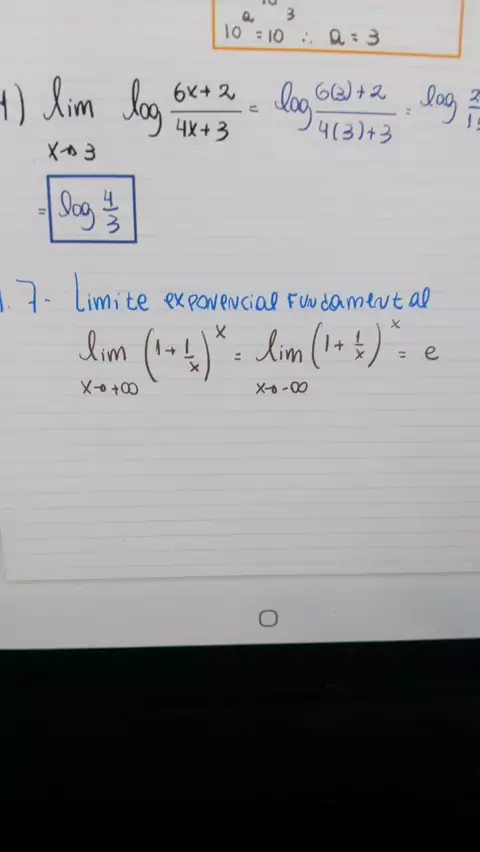 10^a = 10^3 ∴ a = 3
lim log (6x + 2)/(4x + 3) = log (6(3) + 2)/(4(3) + 3) = log
x→3
= log 4/3
7- Limite exponencial fundamental
lim (1 + 1/x)^x = lim (1 + 1/x)^x = e
x→+∞ x→-∞